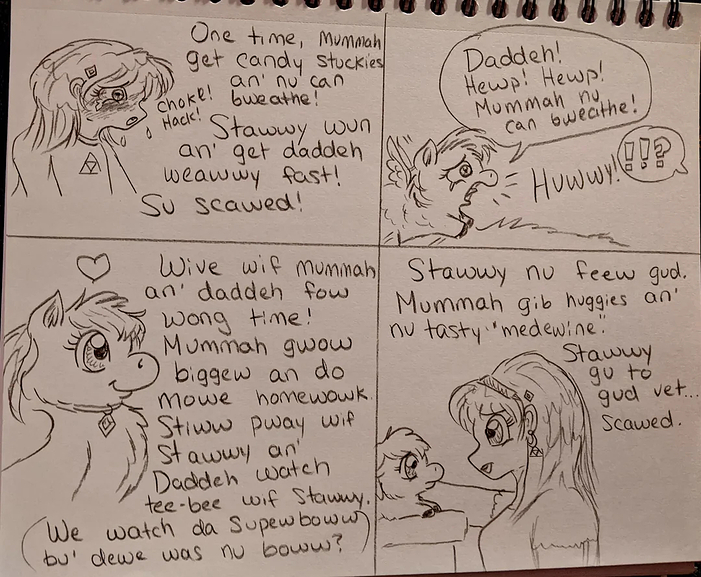 One time, Mummah
get candy stuckies
an' nu can
bweathe!
Choke!
Hack!
Stawwy wun
an' get daddeh
weawwy fast!
Su scawed!
Daddeh!
Hewp! Hewp!
Mummah nu
can bweathe!
Huwwy!
!!?
Wive wif mummah
an' daddeh fow
wong time!
Mummah gwow
biggew an do
mowe homewowk.
Stiww pway wif
Stawwy an'
Daddeh watch
tee-bee wif Stawwy.
(We watch da Supewboww
bu' dewe was nu boww?)
Stawwy nu feew gud.
Mummah gib huggies an'
nu tasty "medewine".
Stawwy
gu to
gud vet...
Scawed.